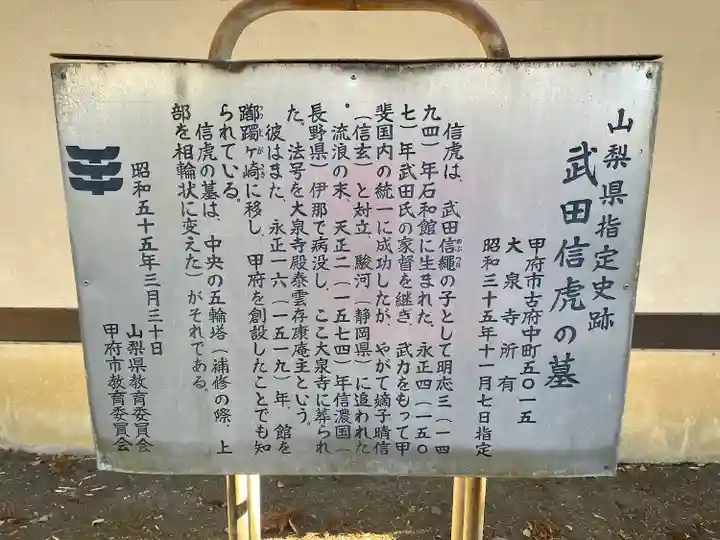 山梨県指定史跡
武田信虎の墓
甲府市古府中町五〇一五
大泉寺所有
昭和三十五年十一月七日指定
信虎は、武田信縄の子として明応三(一四
九四)年石和館に生まれた。永正四(一五〇
七)年武田氏の家督を継ぎ、武力をもって甲
斐国内の統一に成功したが、やがて嫡子晴信
(信玄)と対立、駿河(静岡県)に追われた
。流浪の末、天正二(一五七四)年信濃国(
長野県)伊那で病没し、ここ大泉寺に葬られ
た。法号を大泉寺殿泰雲存康庵主という。
彼はまた、永正一六(一五一九)年、館を
躑躅ヶ崎に移し、甲府を創設したことでも知
られている。
信虎の墓は、中央の五輪塔(補修の際、上
部を相輪状に変えた)がそれである。
昭和五十五年三月三十日
山梨県教育委員会
甲府市教育委員会